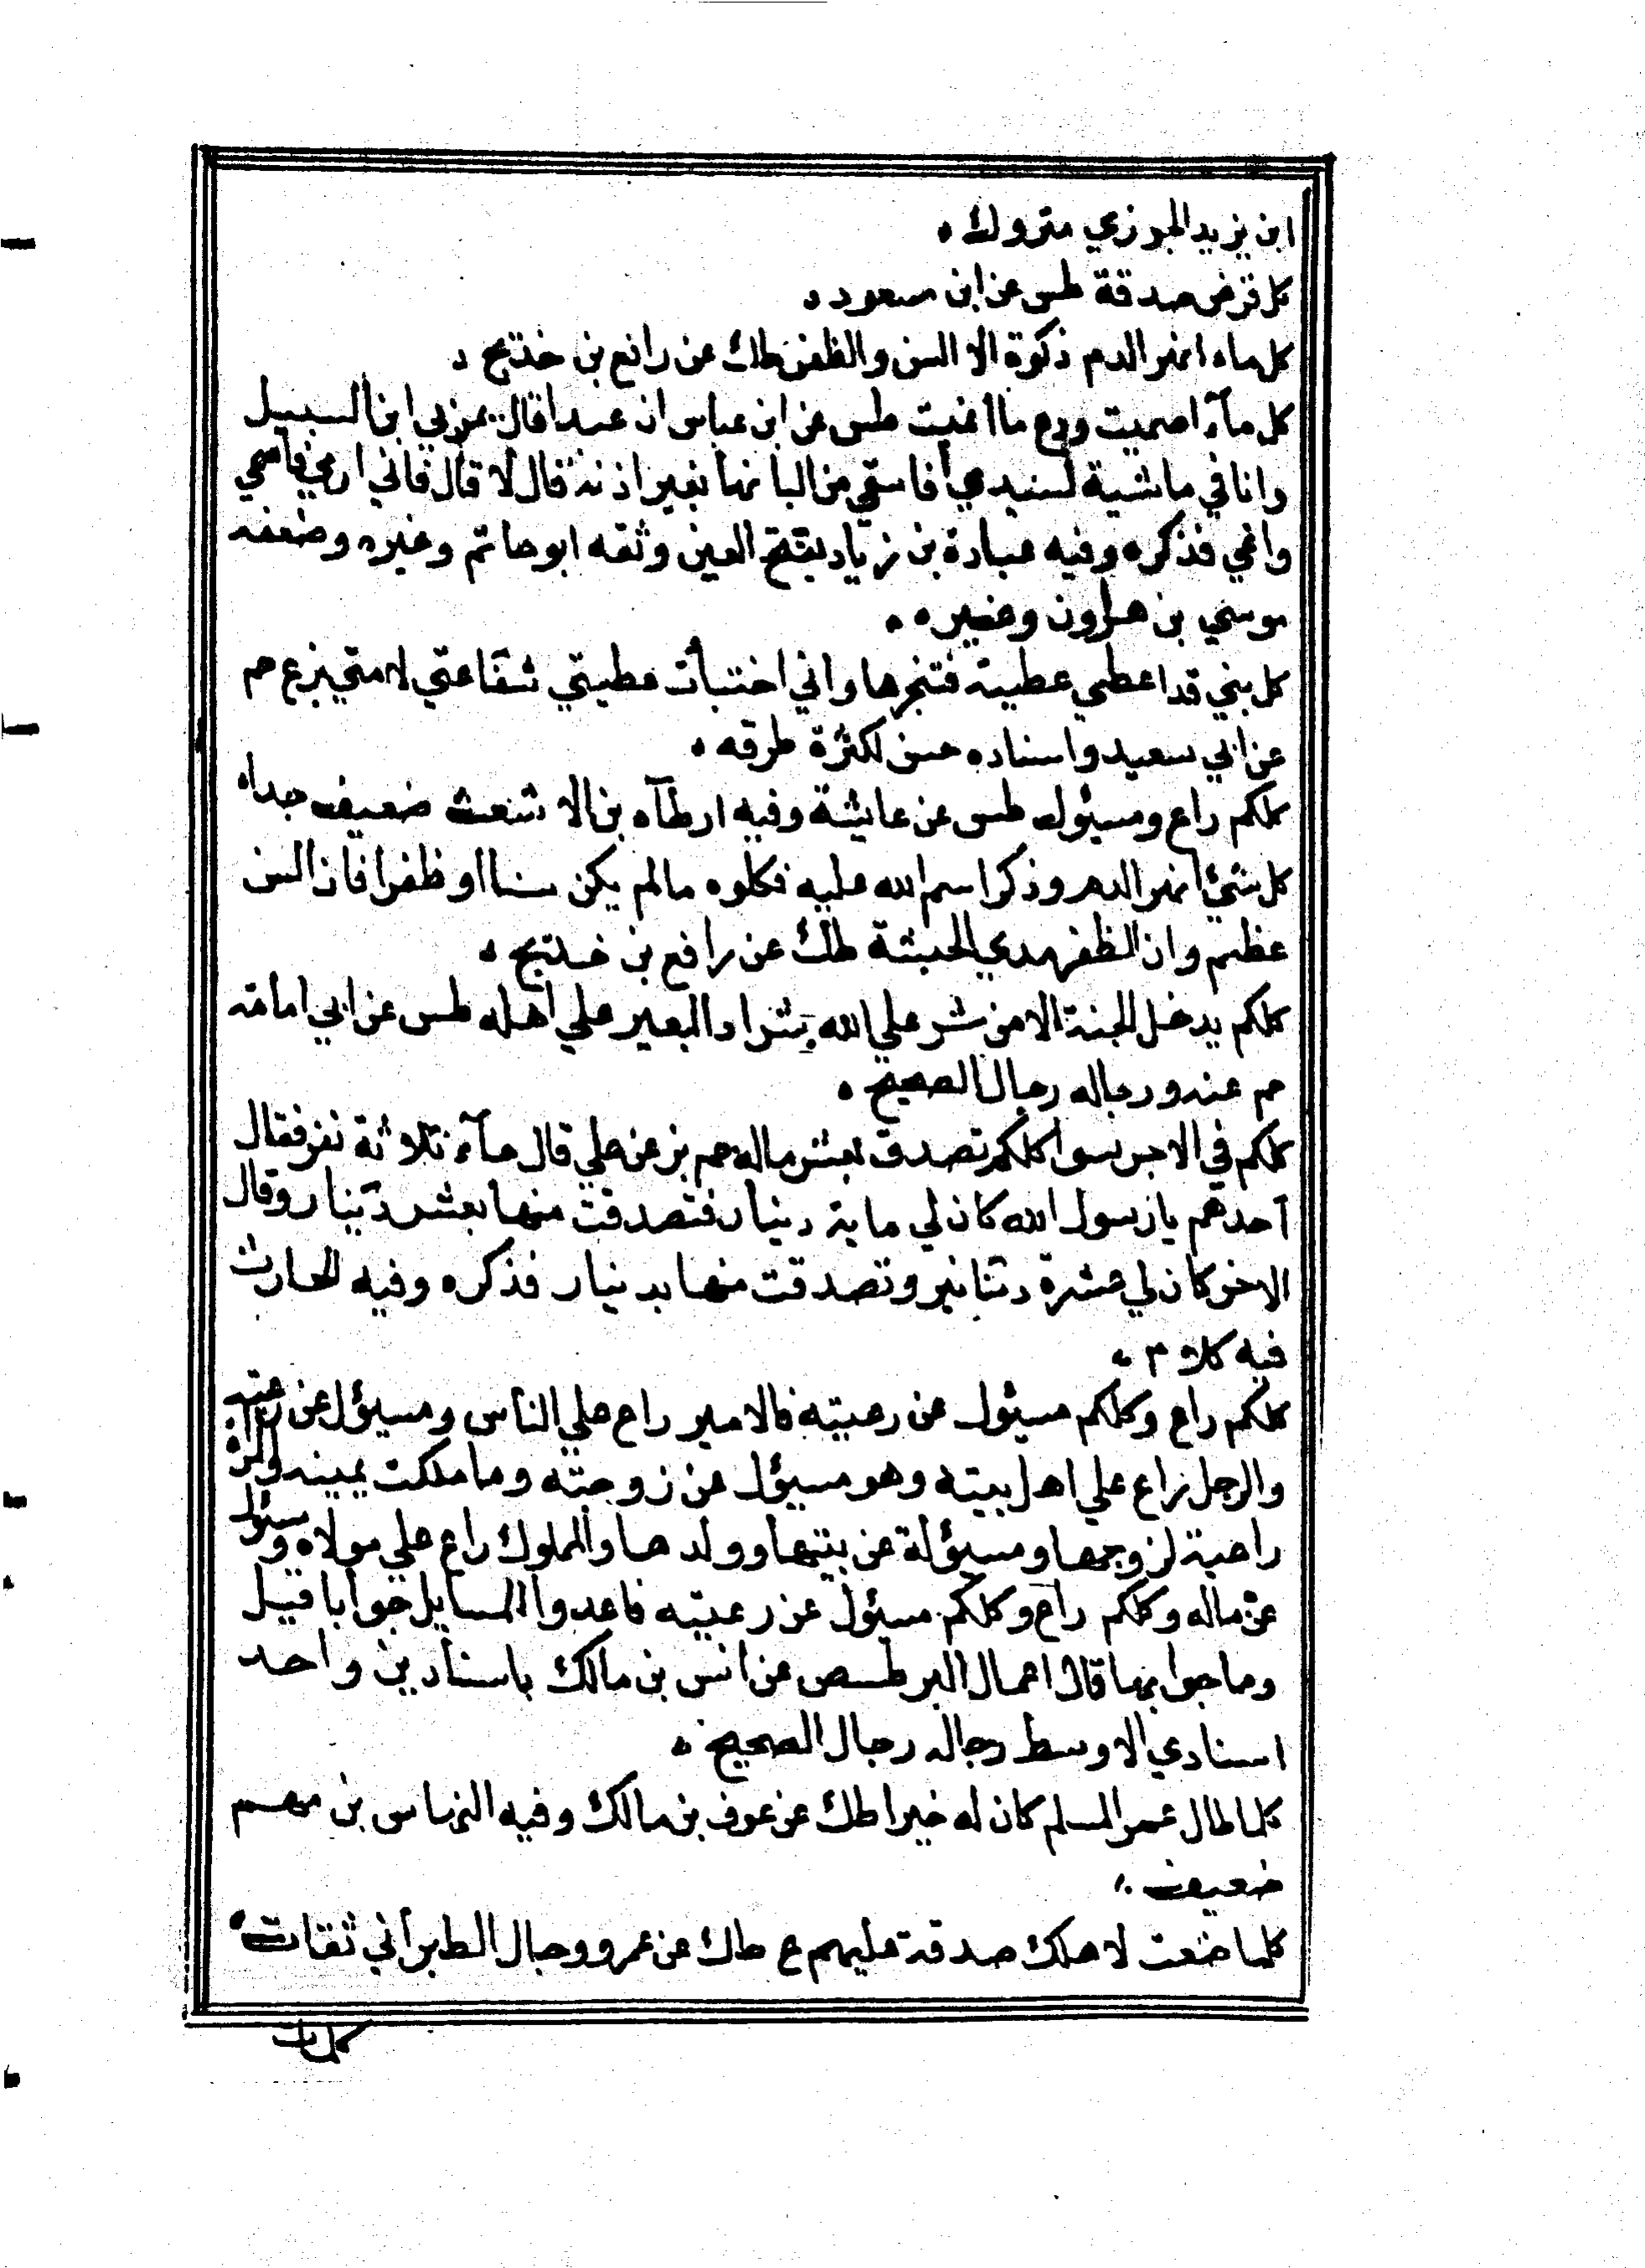 ابن يزيد الجرزي متروك ه
كل قرض صدقة طس عن ابن مسعود ه
كل ماه انهر الدم ذكوة الا السن والظفر طك عن رافع بن خديج ه
كل مآء اصميت ودع ما انميت طس عن ابن عباس ان عبدا قال يمر بي ابن السبيل
وانا في ماشية لسيدي أفاسقي من البانها بغير اذنه قال لا قال فاني ارمي فاصمي
وانمي فذكره وفيه عبادة بن زياد بفتح العين وثقه ابو حاتم وغيره وضعفه
موسي بن هارون وغيره ه
كل بني قد اعطي عطية فتنجزها واني اختبأت عطيتي شفاعتي لامتي بزع حم
عن ابي سعيد واسناده حسن لكثرة طرقه ه
كلكم راع ومسئول طس عن عايشة وفيه ارطآه بن الاشعث ضعيف جداه
كل شئ انهر الدم وذكر اسم الله عليه فكلوه مالم يكن سنا او ظفرا فان السن
عظم وان الظفر مدي الحبشة طك عن رافع بن خديج ه
كلكم يدخل الجنة الا من شرد علي الله شراد البعير علي اهله طس عن ابي امامة
حم عنه ورجاله رجال الصحيح ه
كلكم في الاجر سوا كلكم تصدق بعشر ماله حم بز عن علي قال جآء ثلاثة نفر فقال
احدهم يا رسول الله كان لي ماية دينار فتصدقت منها بعشر دنينار وقال
الاخر كان لي عشرة دنانير وتصدقت منها بدينار فذكره وفيه الحارث
فيه كلام ه
كلكم راع وكلكم مسئول عن رعيته فالامير راع علي الناس ومسيؤل عن رعيته
والرجل راع علي اهل بيته وهو مسيؤل عن زوجته وما ملكت يمينه والمرأة
راعية لزوجها ومسيؤلة عن بيتها وولدها والمملوك راع علي مولاه ومسئول
عن ماله وكلكم راع وكلكم مسئول عن رعيته فاعدوا المسايل جوابا قيل
وما جوابها قال اعمال البر طسص عن انس بن مالك باسنادين واحد
اسنادي الاوسط رجاله رجال الصحيح ه
كلما طال عمر المسلم كان له خيرا طك عن عوف بن مالك وفيه النهاس بن قهم
ضعيف ه
كلما صنعت لاهلك صدقة عليهم ع طك عن عمرو ورجال الطبراني ثقات ه
كل بات